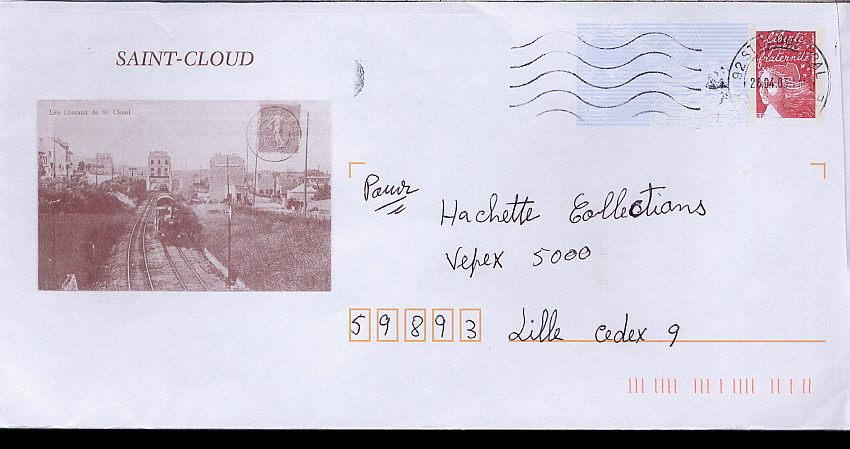 SAINT-CLOUD
Les Coteaux de St. Cloud
Liberté
fraternité
Pour
Hachette Collections
Vepex 5000
59893 Lille cedex 9